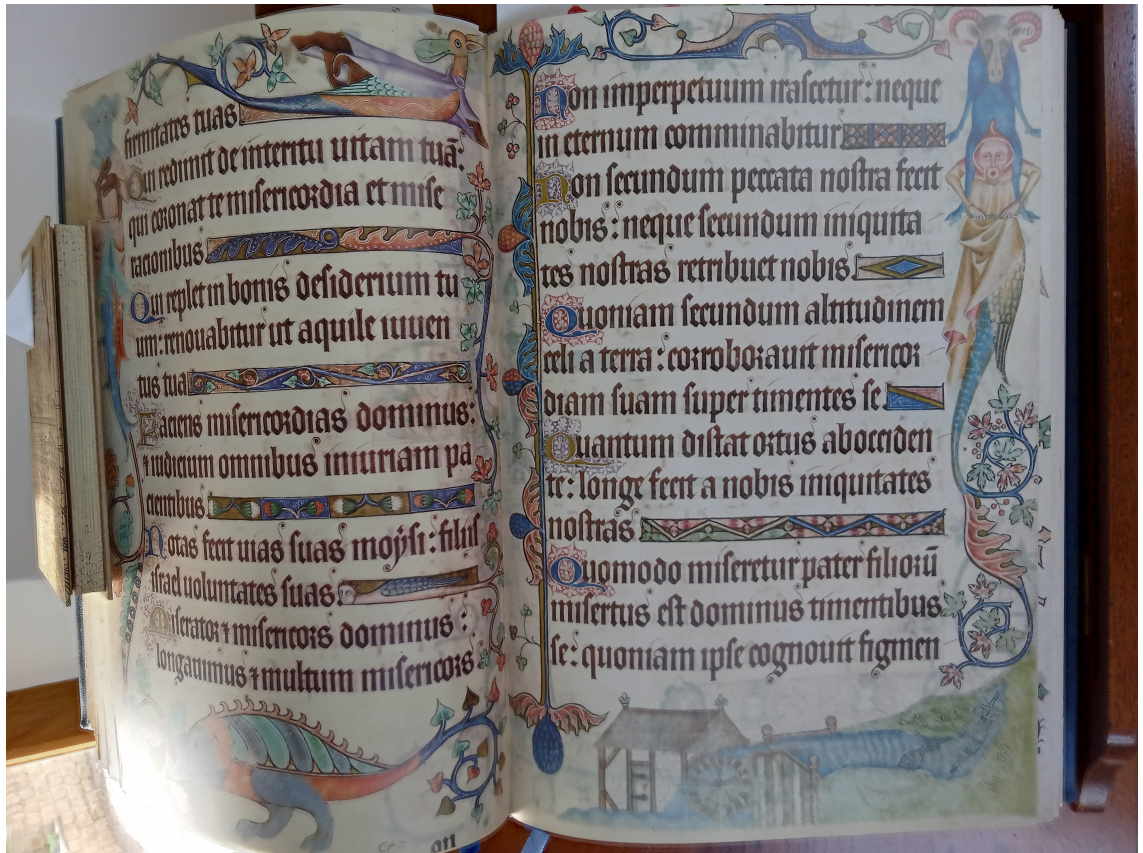 firmitates tuas
Qui redimit de interitu uitam tuā:
qui coronat te misericordia et mise
racionibus.
Qui replet in bonis desiderium tu
um: renouabitur ut aquile iuuen
tus tua
Faciens misericordias dominus:
⁊ iudicium omnibus iniuriam pa
cientibus.
Notas fecit uias suas moẏsi: filiis
israel uoluntates suas.
Miserator ⁊ misericors dominus:
longanimus ⁊ multum misericors
on
Non imperpetuum irascetur: neque
in eternum comminabitur
Non secundum peccata nostra fecit
nobis: neque secundum iniquita
tes nostras retribuet nobis.
Quoniam secundum altitudinem
celi a terra: corroborauit misericor
diam suam super timentes se.
Quantum distat ortus abocciden
te: longe fecit a nobis iniquitates
nostras
Quomodo miseretur pater filiorū
misertus est dominus timentibus
se: quoniam ipse cognouit figmen